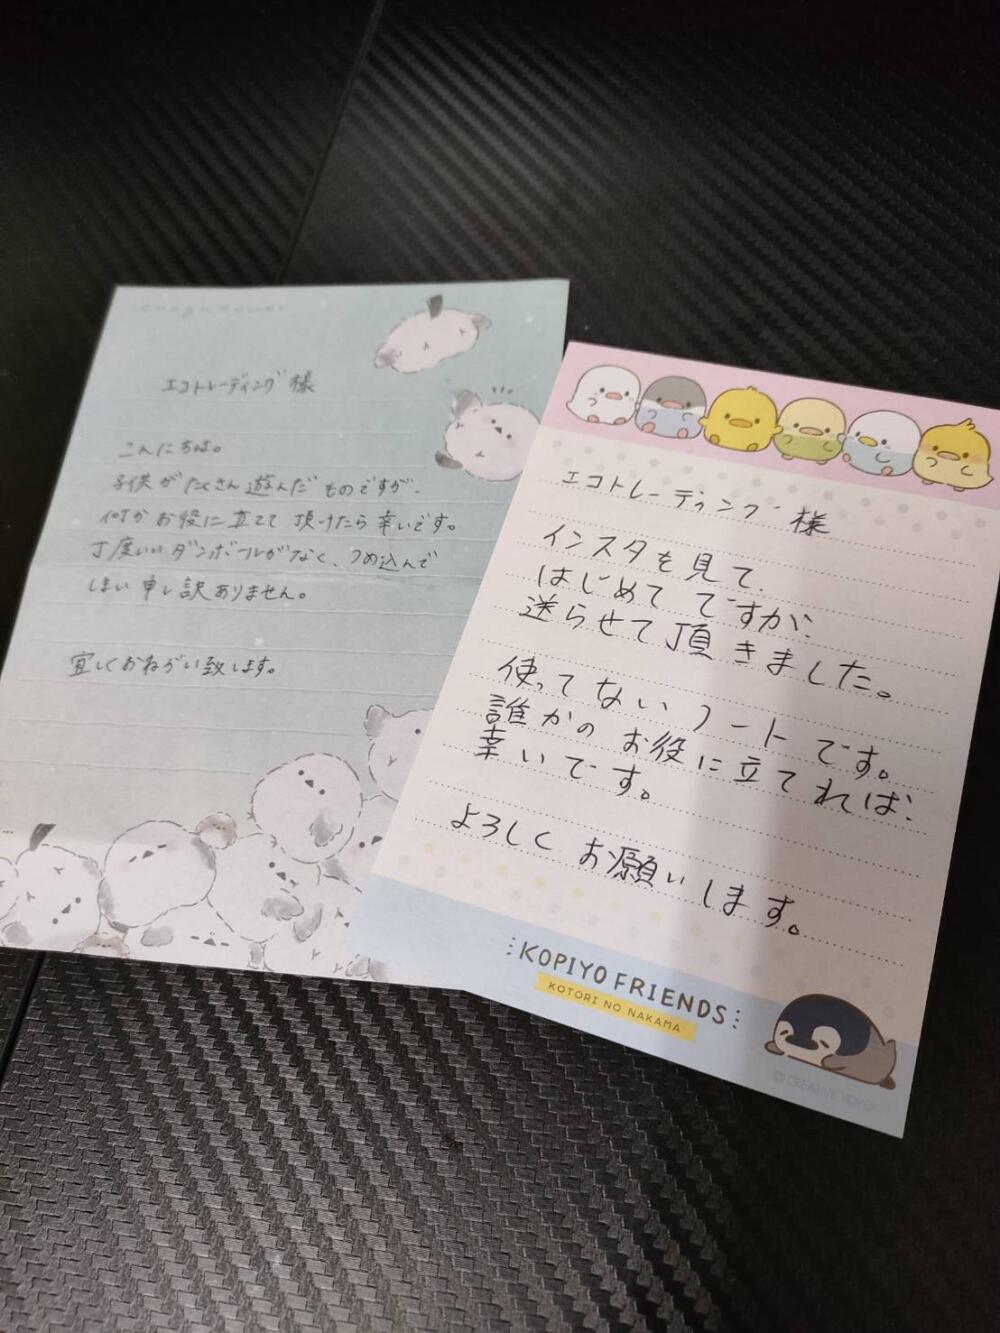 エコトレーディング様
こんにちは。
子供がたくさん遊んだものですが、
何かお役に立てて頂けたら幸いです。
丁度いいダンボールがなく、つめ込んで
しまい申し訳ありません。
宜しくおねがい致します。
エコトレーディング様
インスタを見て、
はじめてですが、
送らせて頂きました。
使ってないノートです。
誰かのお役に立てれば、
幸いです。
よろしくお願いします。
KOPIYO FRIENDS
KOTORI NO NAKAMA
© CREATIVE YOKO